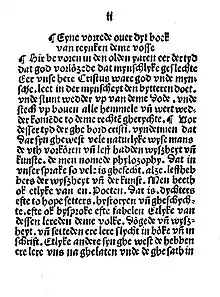 ij
¶ Eyne vorrede ouer dyt boek
van reynken deme vosse
¶ Hir be voren in den olden yaren eer der tyd
dat god vorlözede dat mynschlyke geslechte
Eer vnse here Cristus ware god vnde myn-
sche, leet in der mynscheyt den bytteren doet,
vnde stunt wedder vp van deme dode, vnde
steech vp bouen alle hemmele vn̄ wert wed-
der komēde to deme rechte gherychte. ¶ Vor
desser tyd der ghebord cristi, vyndemen dat
dar syn ghewest vele naturlyke wyse mans
de vth vorkoren vn̄ leff hadden wyszheyt vn̄
kunste. de men nomede phylozophy. Dat in
vnser sprake so vele is ghesecht, alze, leffheb-
bers der wyszheyt vn̄ der kunst. Men heeth
ok etlyke van en. Poeten. Dat is, dychters
efte to hope setters, hystoryen vn̄ gheschych-
te, efte ok bysproke efte fabelen Etlyke van
dessen lereden deme volke. Dögede vn̄ wysz-
heyt. vn̄ setteden ere lere slycht in böke vn̄ in
schrift, Etlyke andere syn ghe west de hebben
ere lere vns na ghelaten vnde de ghesath in